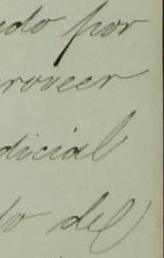 ado por
roveer
dicial
to del